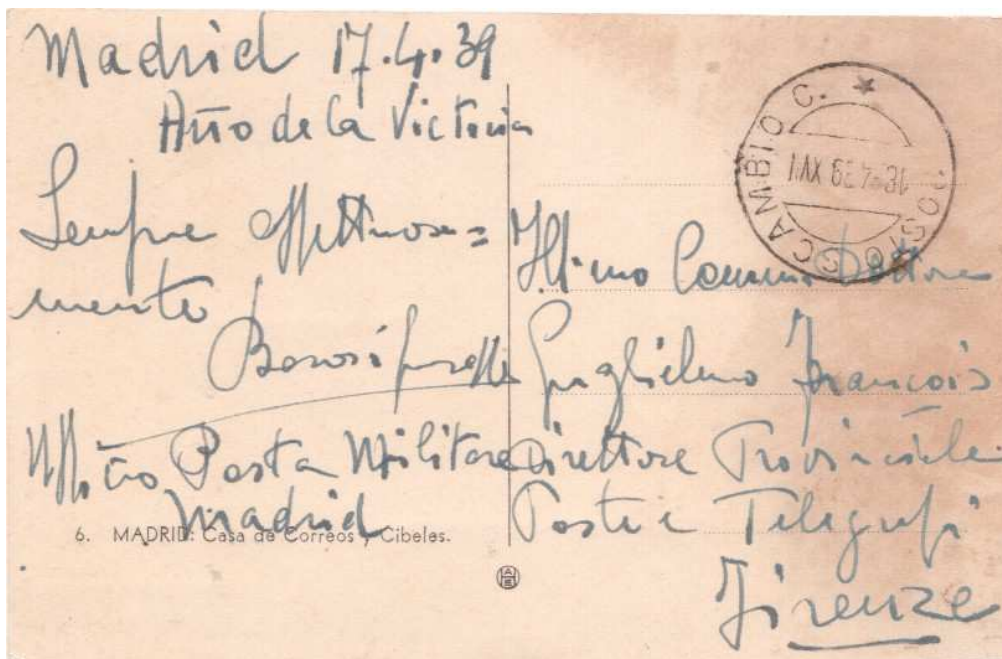 Madrid 17.4.39
Año de la Victoria
Sempre affettuosa=
mente
Ufficio Posta Militare
Madrid
6. MADRID: Casa de Correos y Cibeles.
SCAMBIO C. POSTO
18-4 39 XVI
Ill.mo Comm. Dottore
Guglielmo Francois
Direttore Provinciale
Poste e Telegrafi
Firenze